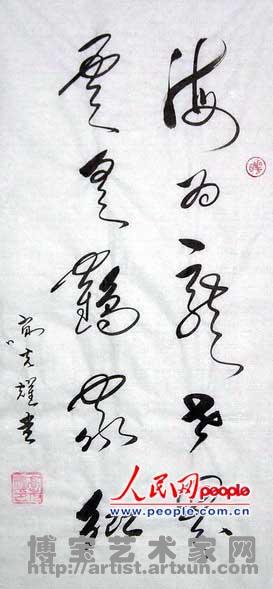 海為龍世界
雲是鶴家鄉
人民网people
www.people.com.cn
博宝艺术家网
http://artist.artxun.com